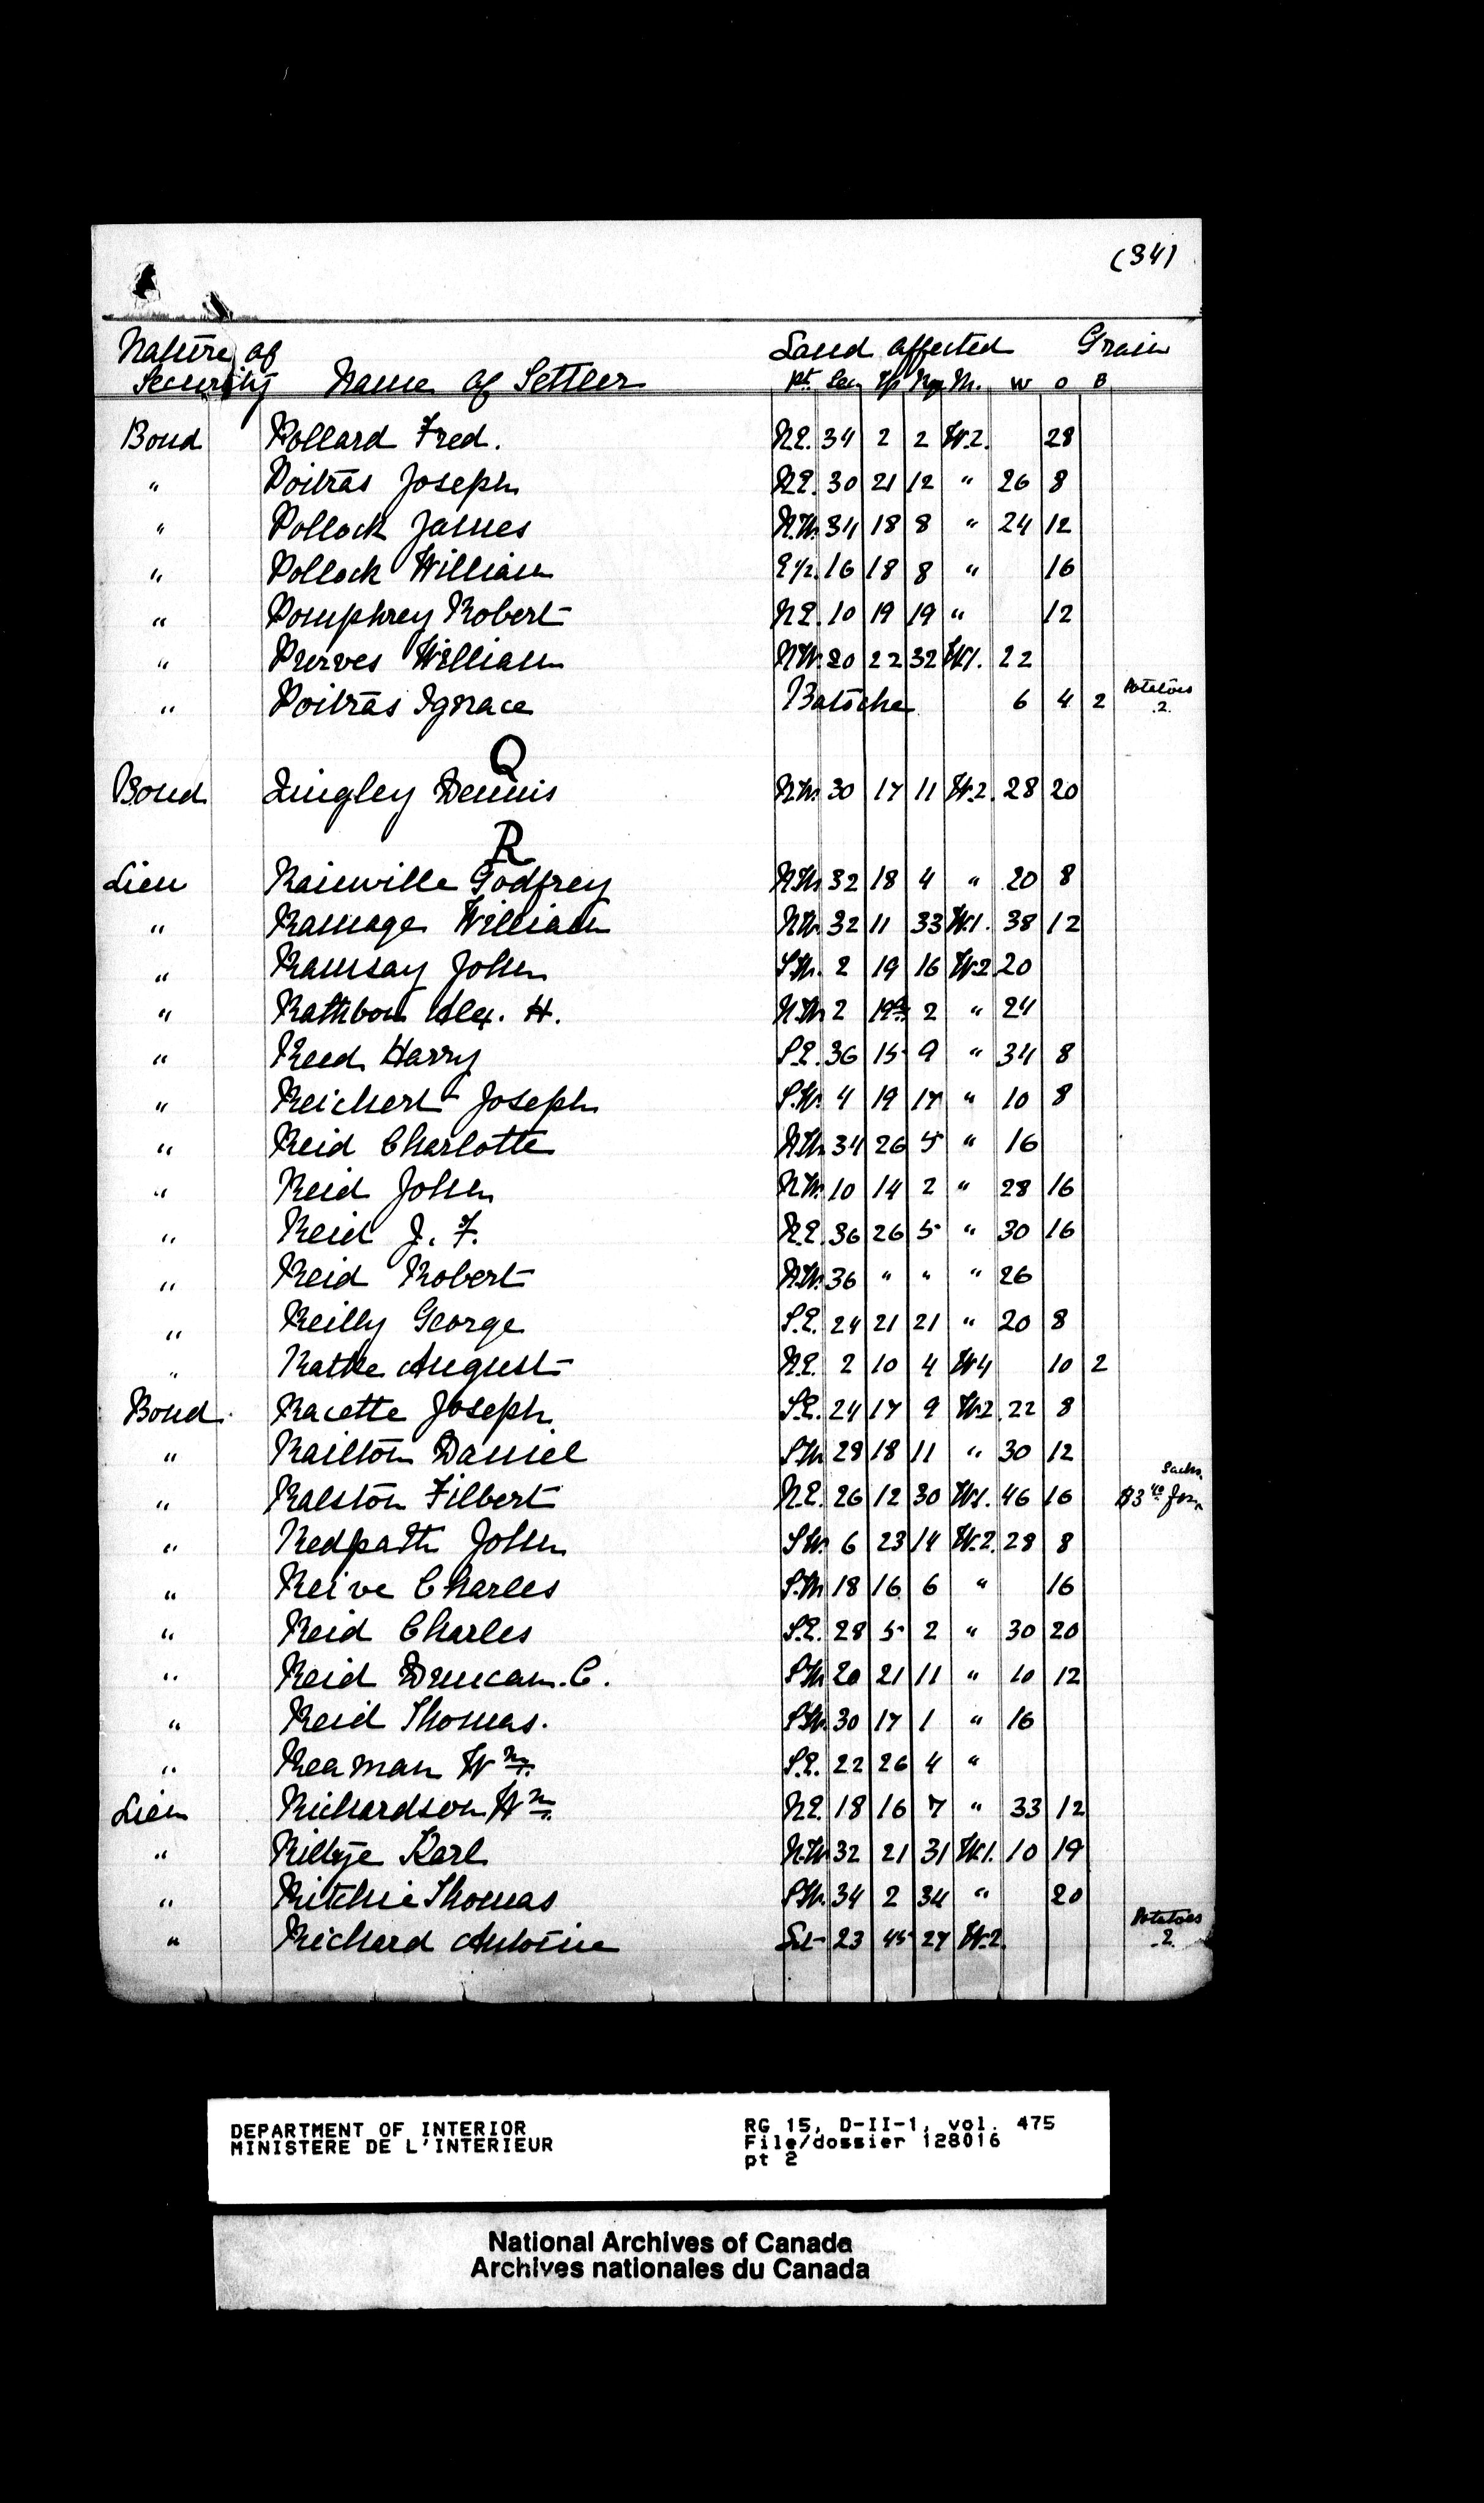 (34)
Nature of Land affected Grain
Security Name of Settler Pt. Sec Tp Rg M. W O B
Bond Pollard Fred. N.E. 34 2 2 W.2. 28
" Poitras Joseph N.E. 30 21 12 " 26 8
" Pollock James N.W. 34 18 8 " 24 12
" Pollock William E 1/2. 16 18 8 " 16
" Pomphrey Robert N.E. 10 19 19 " 12
" Purves William N.W. 20 22 32 W.1. 22
" Poitras Ignace Batoche 6 4 2 Potatoes 2.
Q
Bond Quigley Dennis N.W. 30 17 11 W.2. 28 20
R
Lien Rainville Godfrey N.W. 32 18 4 " 20 8
" Ramage William N.W. 32 11 33 W.1. 38 12
" Ramsay John S.W. 2 19 16 W.2 20
" Rathbon Alex. H. N.W. 2 19a 2 " 24
" Reed Harry S.E. 36 15 9 " 34 8
" Reichert Joseph S.W. 4 19 17 " 10 8
" Reid Charlotte N.W. 34 26 5 " 16
" Reid John N.W. 10 14 2 " 28 16
" Reid J. F. N.E. 36 26 5 " 30 16
" Reid Robert N.W. 36 " " " 26
" Reilly George S.E. 24 21 21 " 20 8
" Rathe August N.E. 2 10 4 W4 10 2
Bond Racette Joseph S.E. 24 17 9 W.2. 22 8
" Railton Daniel S.W. 28 18 11 " 30 12
" Ralston Filbert N.E. 26 12 30 W.1. 46 16 Sacks. $3 40 for
" Redpath John S.W. 6 23 14 W.2. 28 8
" Reive Charles S.W. 18 16 6 " 16
" Reid Charles S.E. 28 5 2 " 30 20
" Reid Duncan. C. S.W. 20 21 11 " 10 12
" Reid Thomas. S.W. 30 17 1 " 16
" Reaman Wm. S.E. 22 26 4 "
Lien Richardson Wm. N.E. 18 16 7 " 33 12
" Rillye Karl N.W. 32 21 31 W.1. 10 19
" Ritchie Thomas S.W. 34 2 34 " 20
" Richard Antoine 23 45 27 W.2. Potatoes 2.
DEPARTMENT OF INTERIOR
MINISTERE DE L'INTERIEUR
RG 15, D-II-1, vol. 475
File/dossier 128016
pt 2
National Archives of Canada
Archives nationales du Canada